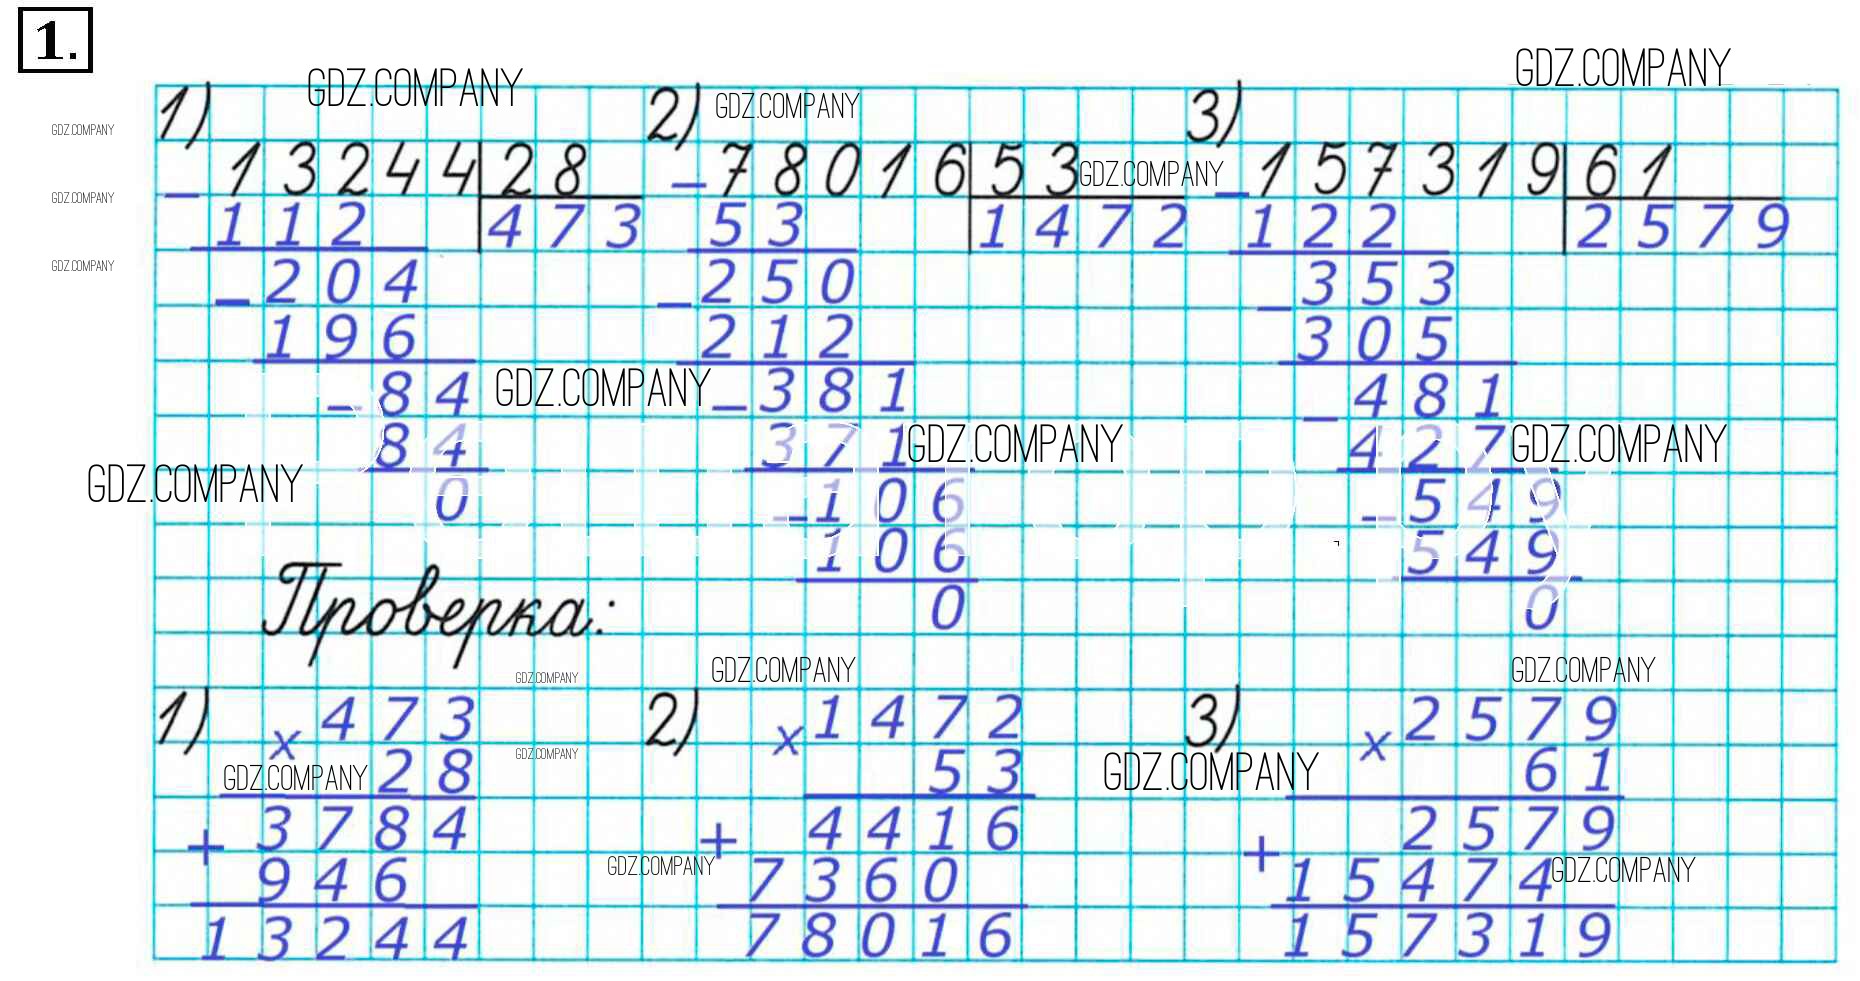 1.
GDZ.COMPANY GDZ.COMPANY
1) 2) GDZ.COMPANY 3)
GDZ.COMPANY
− 13244 28 − 78016 53 GDZ.COMPANY − 157319 61
GDZ.COMPANY
112 473 53 1472 122 2579
GDZ.COMPANY
− 204 − 250 − 353
196 212 305
− 84 GDZ.COMPANY − 381 − 481
84 371 GDZ.COMPANY 427 GDZ.COMPANY
GDZ.COMPANY 0 − 106 − 549
106 549
Проверка: 0 0
GDZ.COMPANY GDZ.COMPANY GDZ.COMPANY
1) x 473 2) x 1472 3) x 2579
GDZ.COMPANY
GDZ.COMPANY 28 53 GDZ.COMPANY 61
+ 3784 + 4416 + 2579
946 GDZ.COMPANY 7360 15474 GDZ.COMPANY
13244 78016 157319